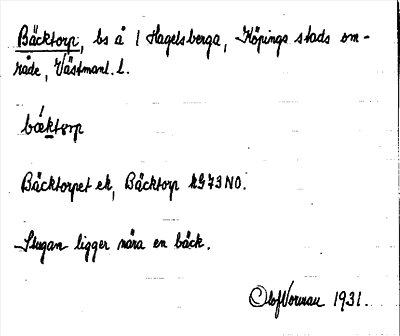 Bäcktorp, bs å 1 Hagelsberga, Köpings stads om-
råde, Västmanl. l.
bǽktɔrp
Bäcktorpet ek, Bäcktorp RG73NO.
Stugan ligger nära en bäck.
Olof Vorman 1931.